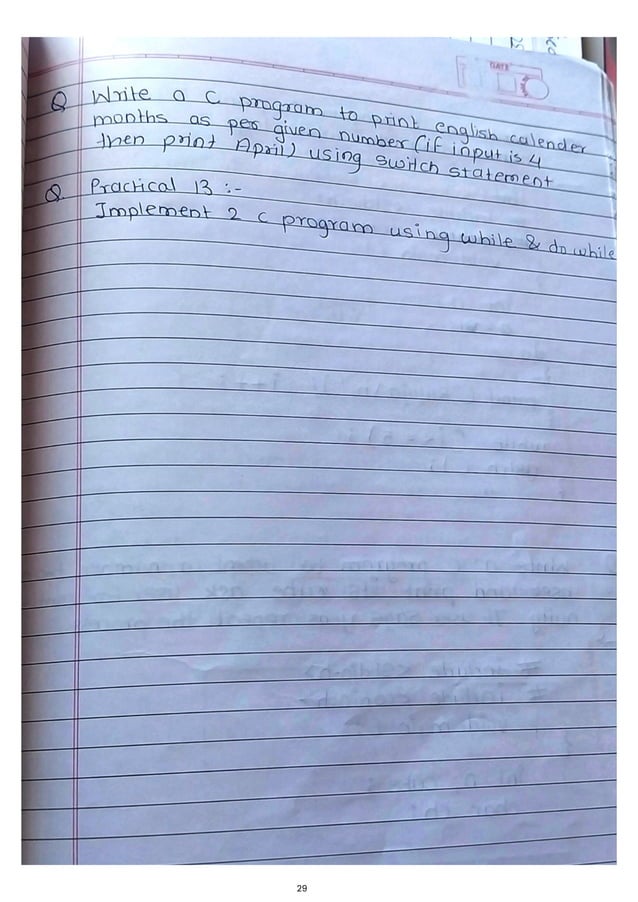 DATE
Q Write a C program to print english calender
months as per given number (if input is 4
then print April) using switch statement
Q. Practical 13 :-
Implement 2 C program using while & do while
29